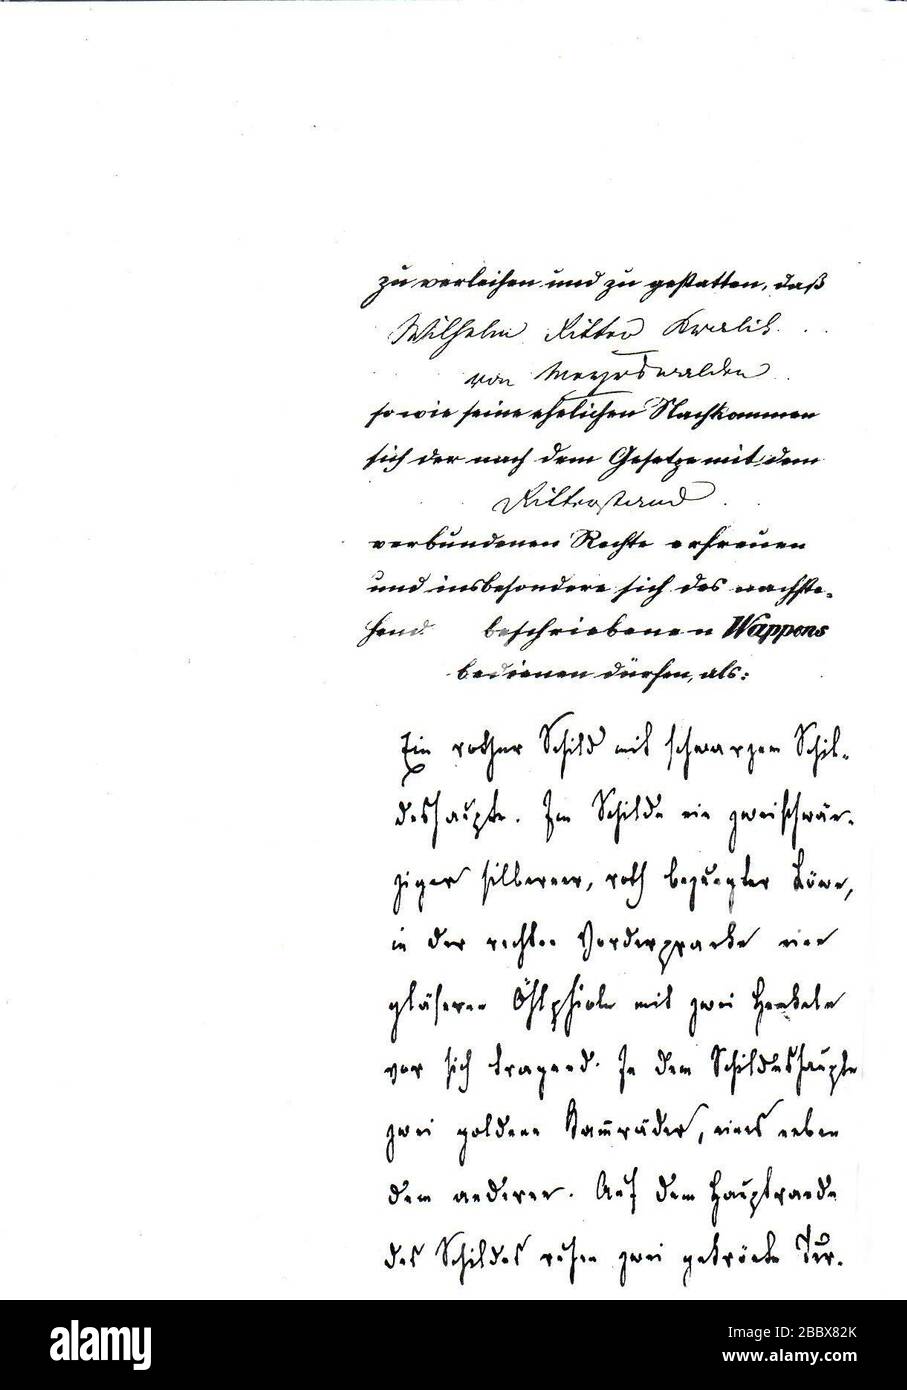 zu verleihen und zu gestatten, daß
Wilhelm Ritter Kralik
von Meyrswalden
sowie seine ehelichen Nachkommen
sich der nach dem Gesetze mit dem
Ritterstand
verbundenen Rechte erfreuen
und insbesondere sich des nachste-
hend beschriebenen Wappens
bedienen dürfen, als:
Ein rother Schild mit schwarzem Schil-
deshaupte. Im Schilde ein zweischwän-
ziger silberner, roth bezungter Löwe,
in der rechten Vorderpranke eine
gläserne Öhlphiole mit zwei Henkeln
vor sich tragend. In dem Schildeshaupte
zwei goldene Kam̅räder, eines neben
dem anderen. Auf dem Hauptrande
des Schildes ruhen zwei gekrönte Tur-
alamy
alamy
Image ID: 2BBX82K
www.alamy.com